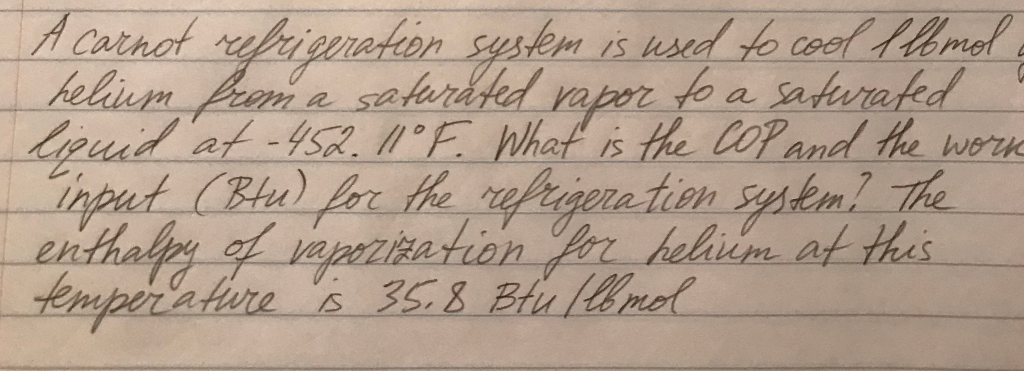 A carnot refrigeration system is used to cool 1 lbmol
helium from a saturated vapor to a saturated
liquid at -452.11°F. What is the COP and the work
input (Btu) for the refrigeration system? The
enthalpy of vaporization for helium at this
temperature is 35.8 Btu/lbmol